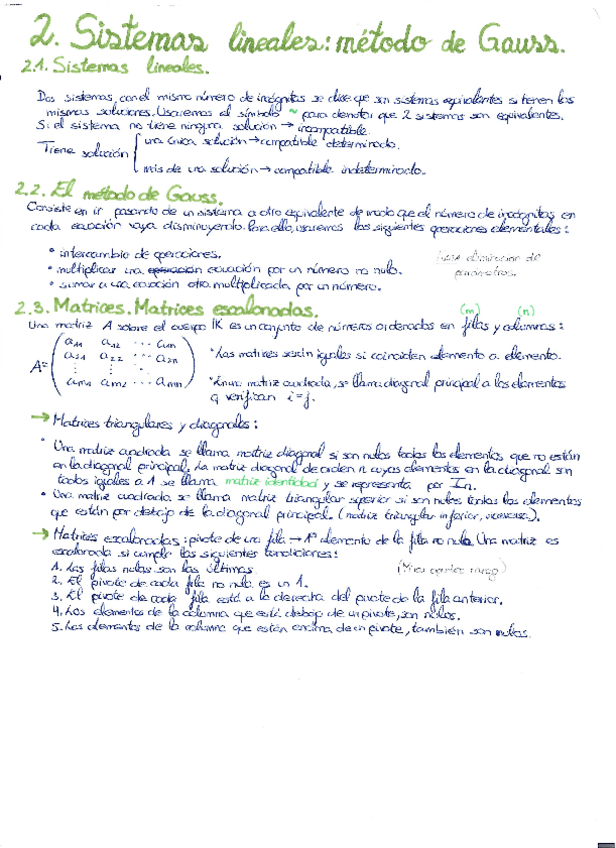 2. Sistemas lineales: método de Gauss.
2.1. Sistemas lineales.
Dos sistemas, con el mismo número de incógnitas se dice que son sistemas equivalentes si tienen las
mismas soluciones. Usaremos el símbolo ~ para denotar que 2 sistemas son equivalentes.
Si el sistema no tiene ninguna solución → incompatible.
Tiene solución { una única solución → compatible determinado.
más de una solución → compatible indeterminado.
2.2. El método de Gauss.
Consiste en ir pasando de un sistema a otro equivalente de modo que el número de incógnitas en
cada ecuación vaya disminuyendo. Para ello, usaremos las siguientes operaciones elementales:
• intercambio de operaciones.
• multiplicar una operación ecuación por un número no nulo.
• sumar a una ecuación otra multiplicada por un número.
eliminación de
parámetros.
2.3. Matrices. Matrices escalonadas.
(m) (n)
Una matriz A sobre el cuerpo IK es un conjunto de números ordenados en filas y columnas:
A = ( a11 a12 ... a1n
a21 a22 ... a2n
⋮ ⋮ ⋱ ⋮
am1 am2 ... amn )
• Las matrices serán iguales si coinciden elemento a elemento.
• En una matriz cuadrada, se llama diagonal principal a los elementos
q verifican i=j.
→ Matrices triangulares y diagonales:
• Una matriz cuadrada se llama matriz diagonal si son nulos todos los elementos que no están
en la diagonal principal. La matriz diagonal de orden n cuyos elementos en la diagonal son
todos iguales a 1 se llama matriz identidad y se representa por In.
• Una matriz cuadrada se llama matriz triangular superior si son nulos todos los elementos
que están por debajo de la diagonal principal. (matriz triangular inferior, viceversa).
→ Matrices escalonadas: pivote de una fila → 1º elemento de la fila no nulo. Una matriz es
escalonada si cumple las siguientes condiciones:
1. Las filas nulas son las últimas.
2. El pivote de cada fila no nula es un 1.
3. El pivote de cada fila está a la derecha del pivote de la fila anterior.
4. Los elementos de la columna que está debajo de un pivote, son nulos.
5. Los elementos de la columna que están encima de un pivote, también son nulos.